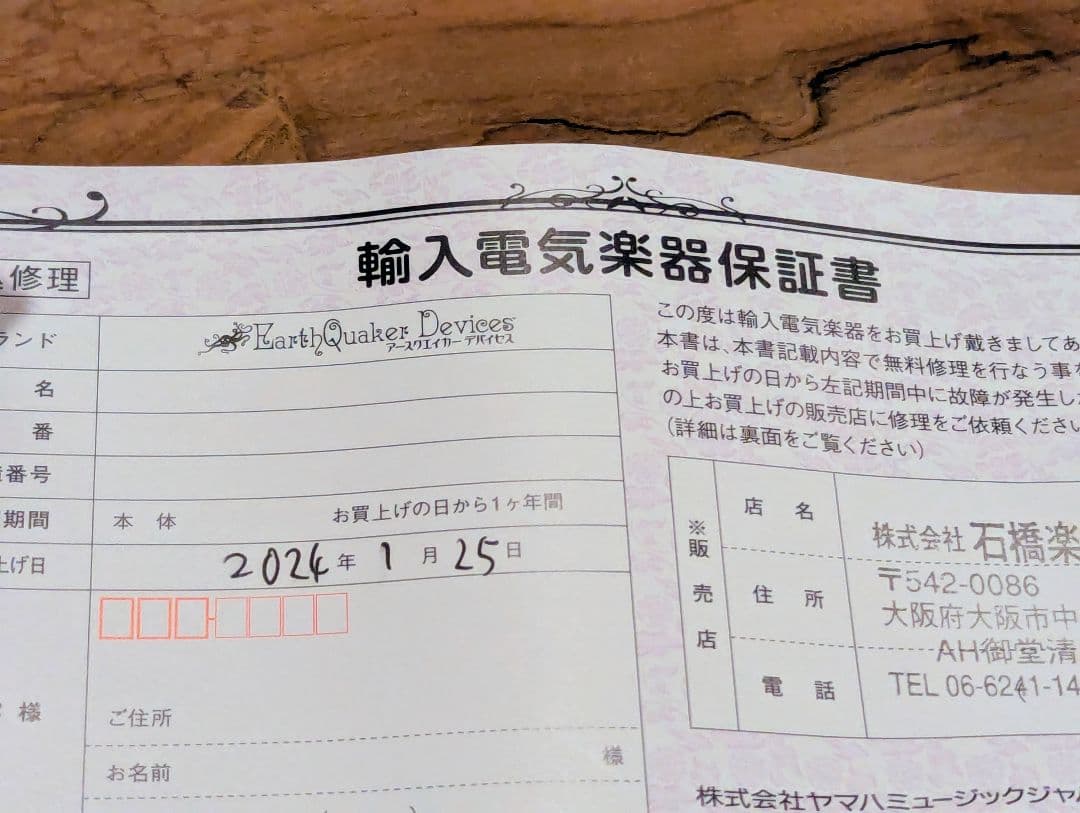 輸入電気楽器保証書
修理
ランド
EarthQuaker Devices
アースクエイカー デバイセス
名
番
番号
期間
本体
お買上げの日から1ヶ年間
上げ日
2024年1月25日
様
ご住所
お名前
様
この度は輸入電気楽器をお買上げ戴きましてあ
本書は、本書記載内容で無料修理を行なう事を
お買上げの日から左記期間中に故障が発生し
の上お買上げの販売店に修理をご依頼ください
(詳細は裏面をご覧ください)
※販売店
店名
株式会社 石橋楽
住所
〒542-0086
大阪府大阪市中
AH御堂清
電話
TEL 06-6241-14
株式会社ヤマハミュージックジャ